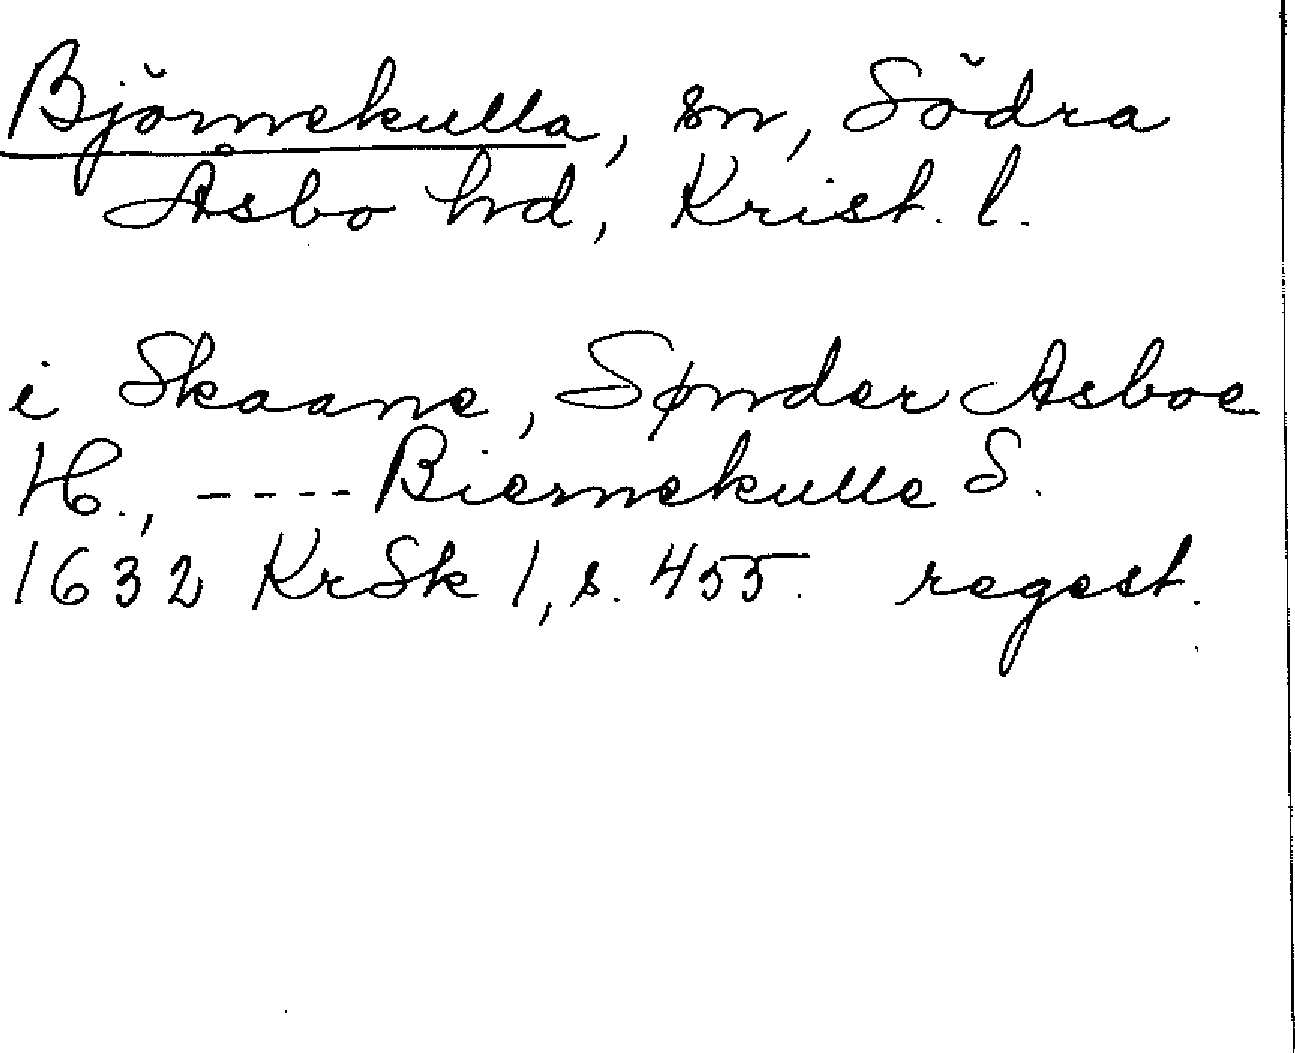 Björnekulla, sn, Södra
Åsbo hd, Krist. l.
i Skaane, Sønder Asboe
H., ---- Biernekulle S.
1632 KrSk 1, s. 455. regest.